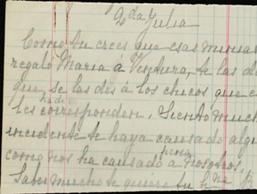 Qda Julia
Como tu crees que esas monas
regalo Maria a Ventura, se las di
que, se las dés a los chicos que
nadie
les corresponden. Siento much
incidente te haya causado alg
como nos ha causado a nosotros.
Sabes mucho te quiere tu